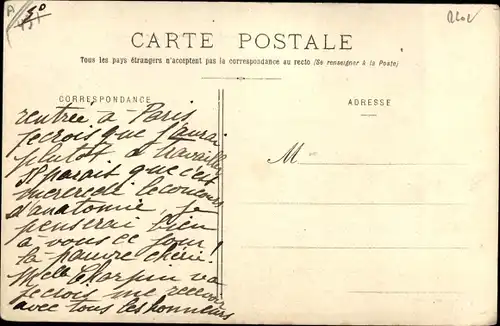 CARTE POSTALE
Tous les pays étrangers n'acceptent pas la correspondance au recto (Se renseigner à la Poste)
CORRESPONDANCE
ADRESSE
M
rentrée à Paris
je crois que j'aurai
plutôt à travailler
Il parait que c'est
mercredi le concours
d'anatomie je
penserai bien
à vous ce jour
là pauvre chérie!
Melle Charpin va
je crois me recevoir
avec tous les honneurs